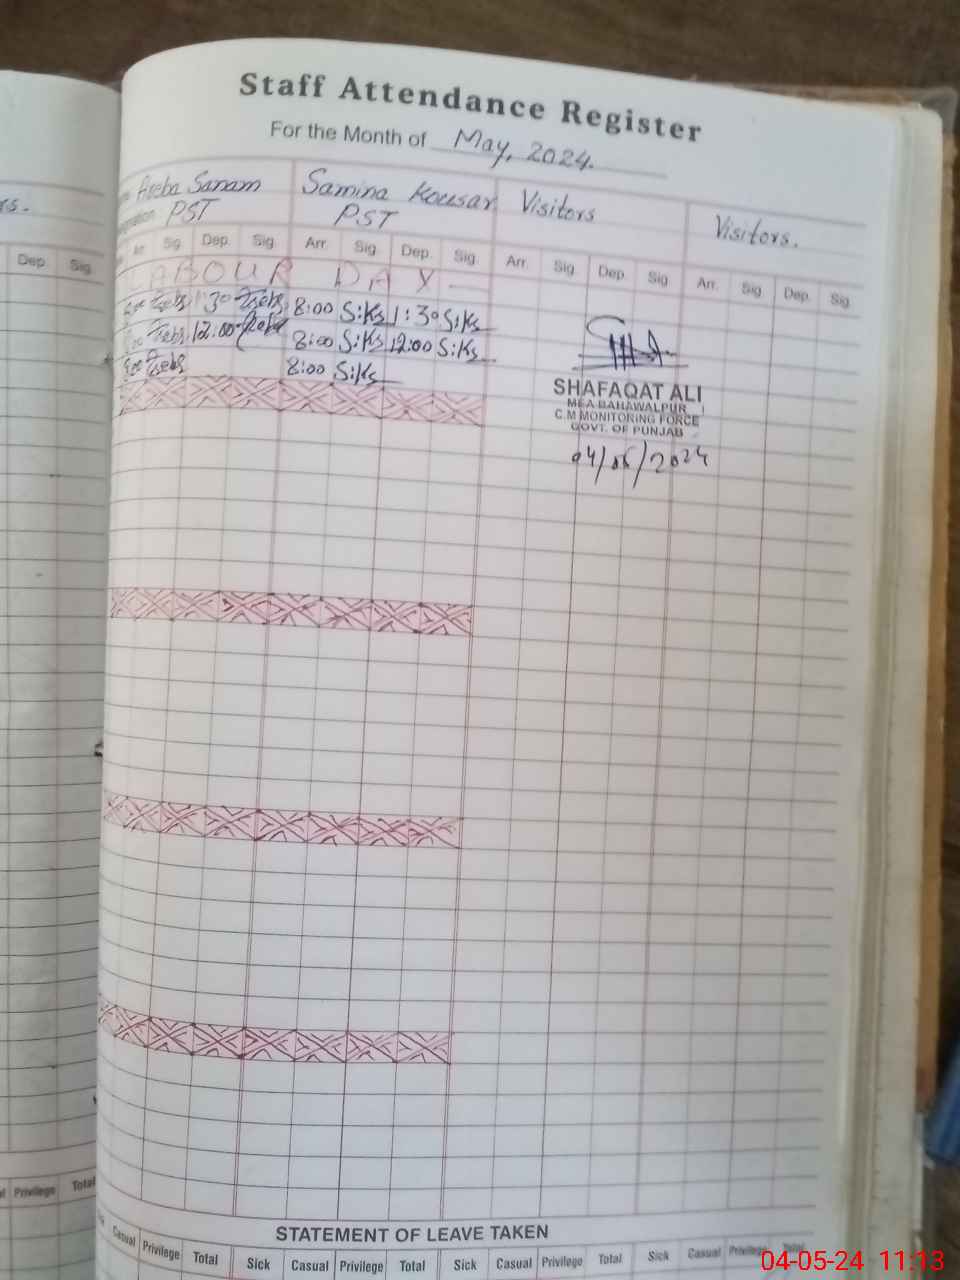 Staff Attendance Register
For the Month of May, 2024.
rs.
Areba Sanam Samina Kousar Visitors Visitors.
PST PST
Dep. Sig. Arr. Sig. Dep. Sig. Arr. Sig. Dep. Sig. Arr. Sig. Dep. Sig. Arr. Sig. Dep. Sig.
LABOUR DAY
1:30 8:00 S:Ks 1:30 S:Ks
12:00 8:00 S:Ks 12:00 S:Ks
8:00 8:00 S:Ks
SHAFAQAT ALI
MEA BAHAWALPUR
C.M MONITORING FORCE
GOVT. OF PUNJAB
04/05/2024
STATEMENT OF LEAVE TAKEN
Privilege Total Casual Privilege Total Sick Casual Privilege Total Sick Casual Privilege Total Sick Casual Privilege Total
04-05-24 11:13